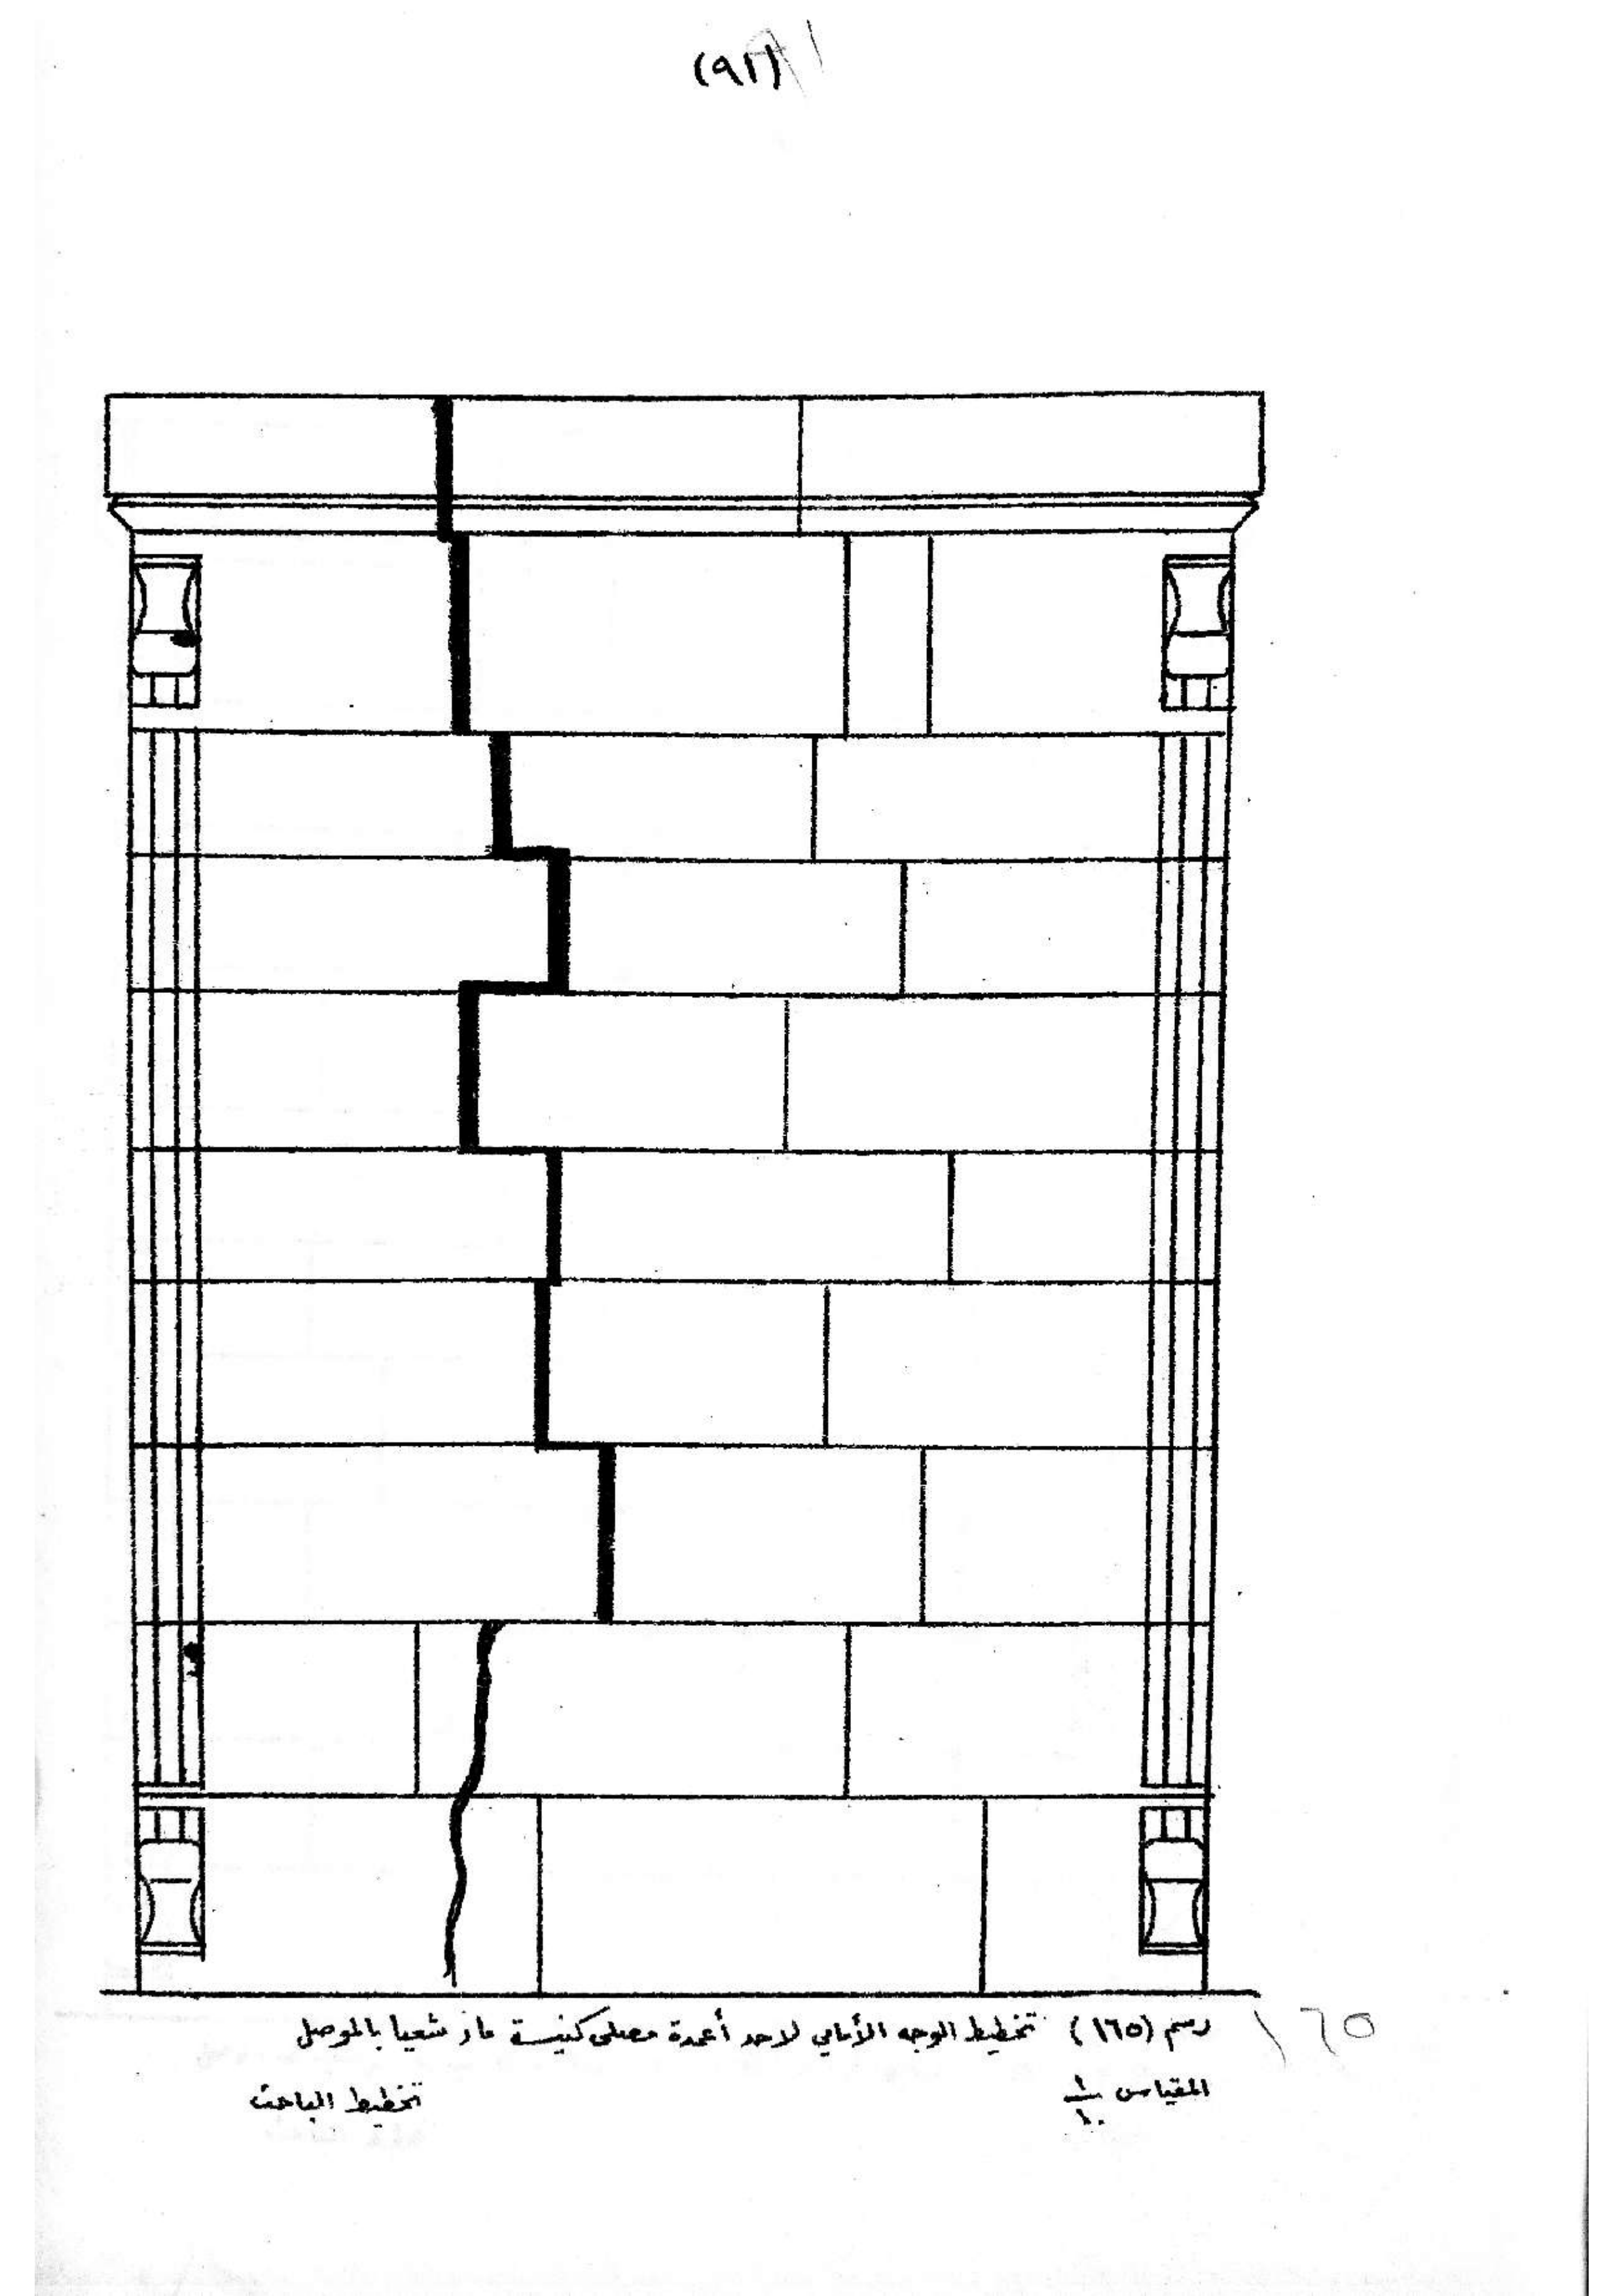 (٩١)
رسم (١٦٥) تخطيط الوجه الأمامي لاحد أعمدة مصلى كنيسة مار شعيا بالموصل
١٦٥
المقياس ١/١٠
تخطيط الباحث